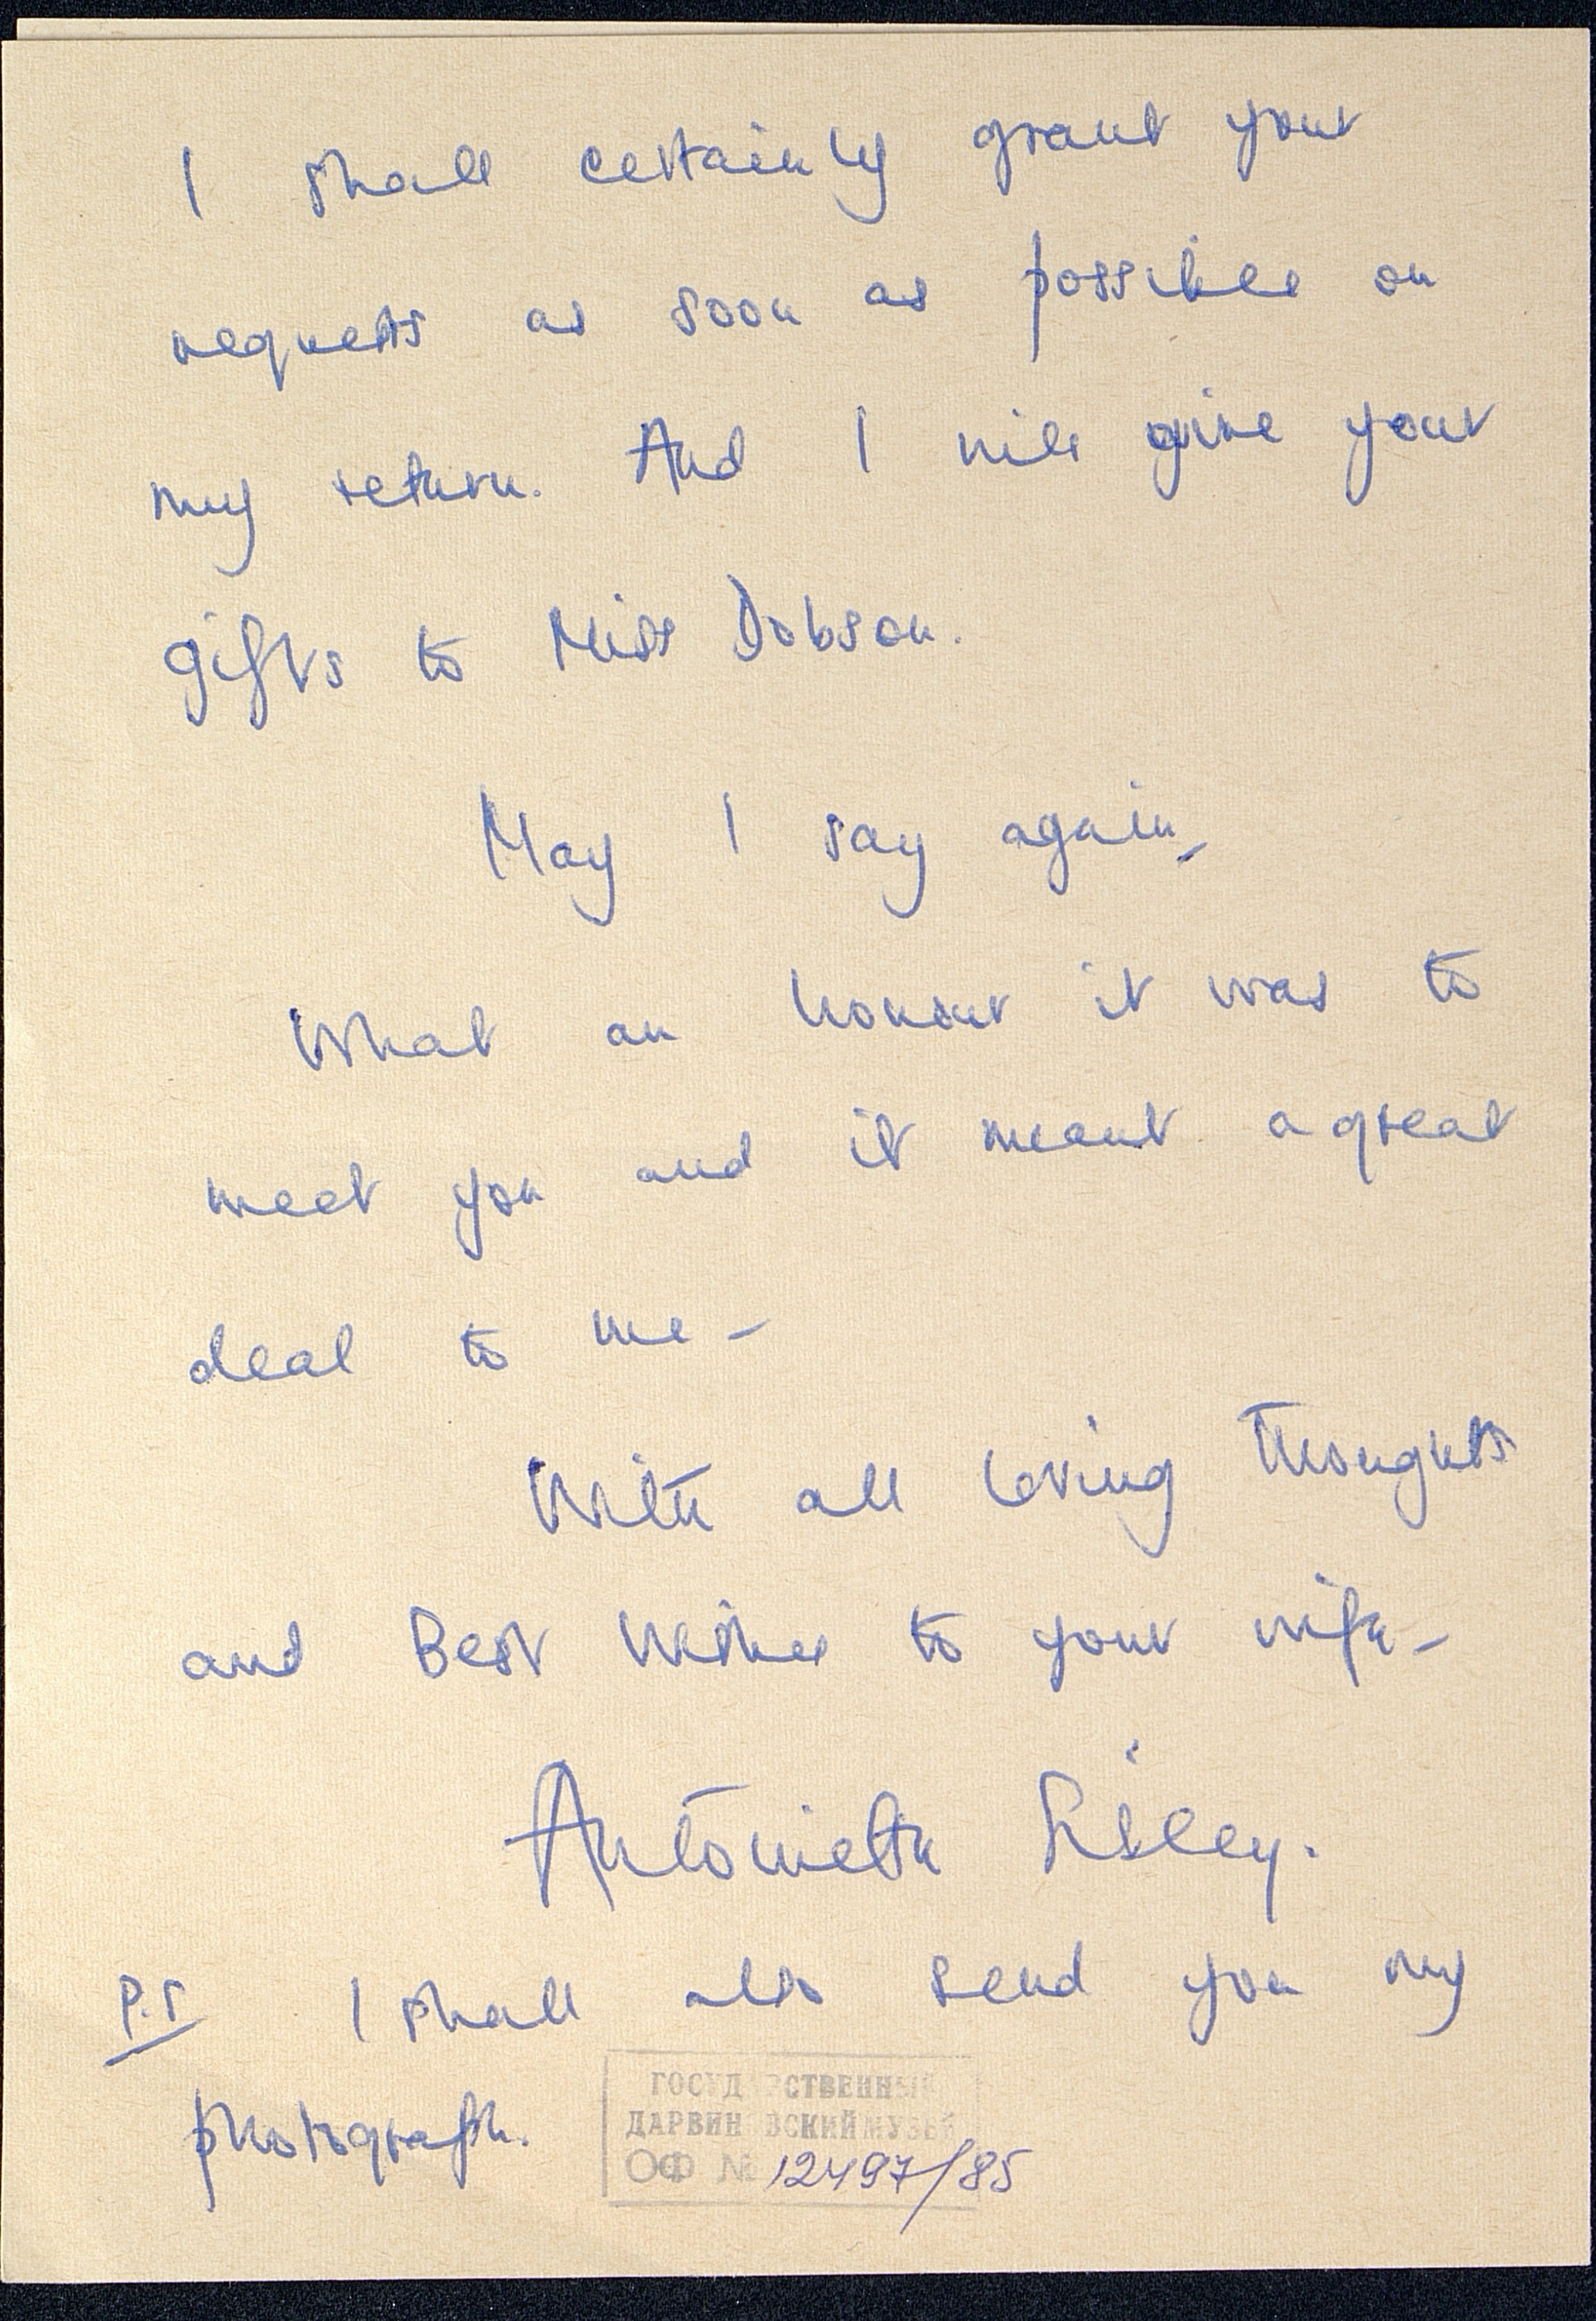 I shall certainly grant your
requests as soon as possible on
my return. And I will give your
gifts to Miss Dobson.
May I say again,
What an honour it was to
meet you and it meant a great
deal to me –
With all loving thoughts
and Best Wishes to your wife –
Antoinette Sibley.
P.S I shall also send you my
photograph.
ГОСУДАРСТВЕННЫЙ
ДАРВИНОВСКИЙ МУЗЕЙ
ОФ № 12497/85